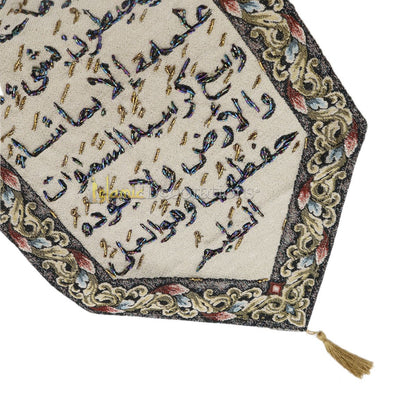 علمه إلا بما شاء
وسع كرسيه السموات
والأرض ولا يئوده
حفظهما وهو العلي
العظيم